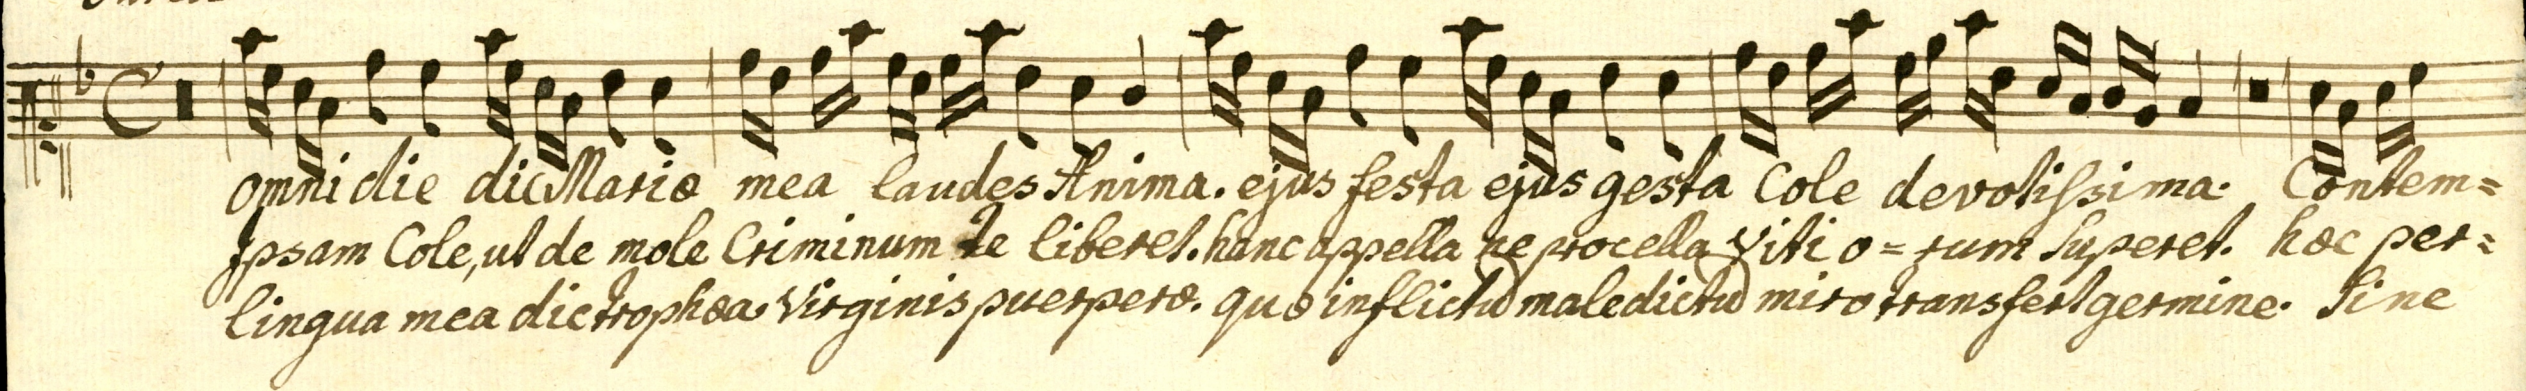 omni die dic Mariæ mea laudes Anima. ejus festa ejus gesta Cole devotissima. Contem=
Ipsam Cole, ut de mole Criminum te liberet. hanc appella ne procella Vitio=rum superet. hæc per=
lingua mea dic trophæa Virginis puerperæ. quæ inflictũ maledictũ miro transfert germine. Sine